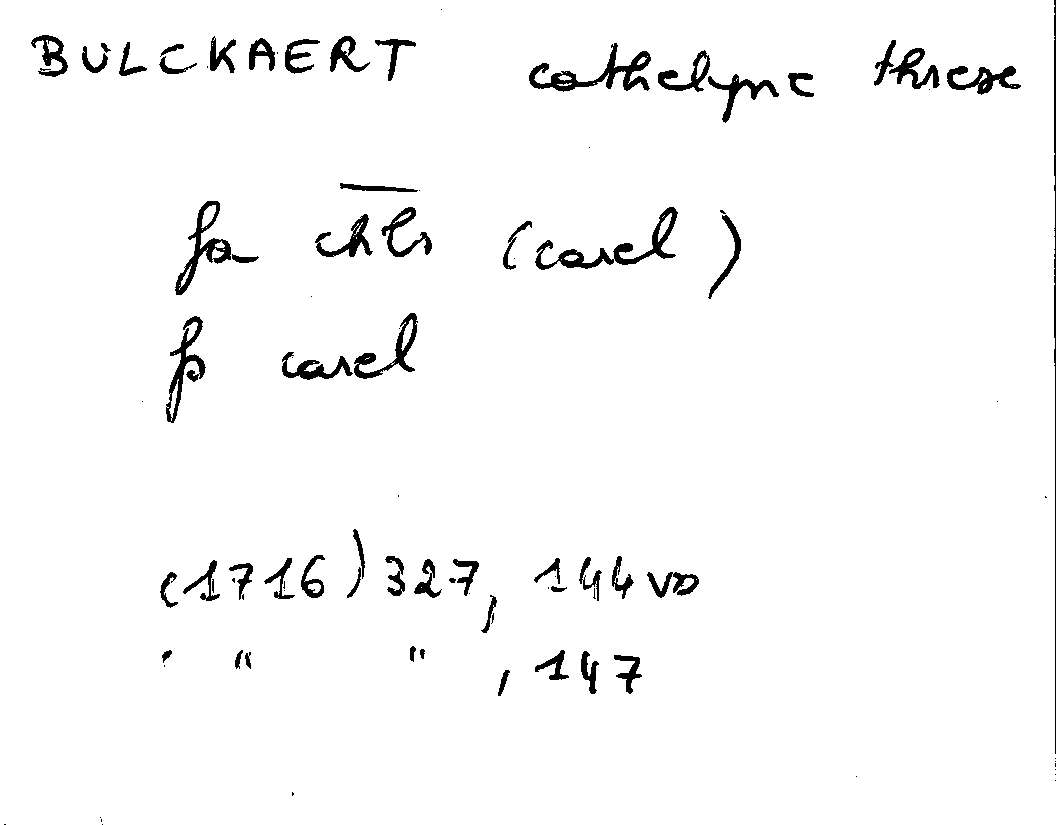 BULCKAERT cathelyne threse
fa chls (carel)
fs carel
(1716) 327, 144 vo
" " " , 147